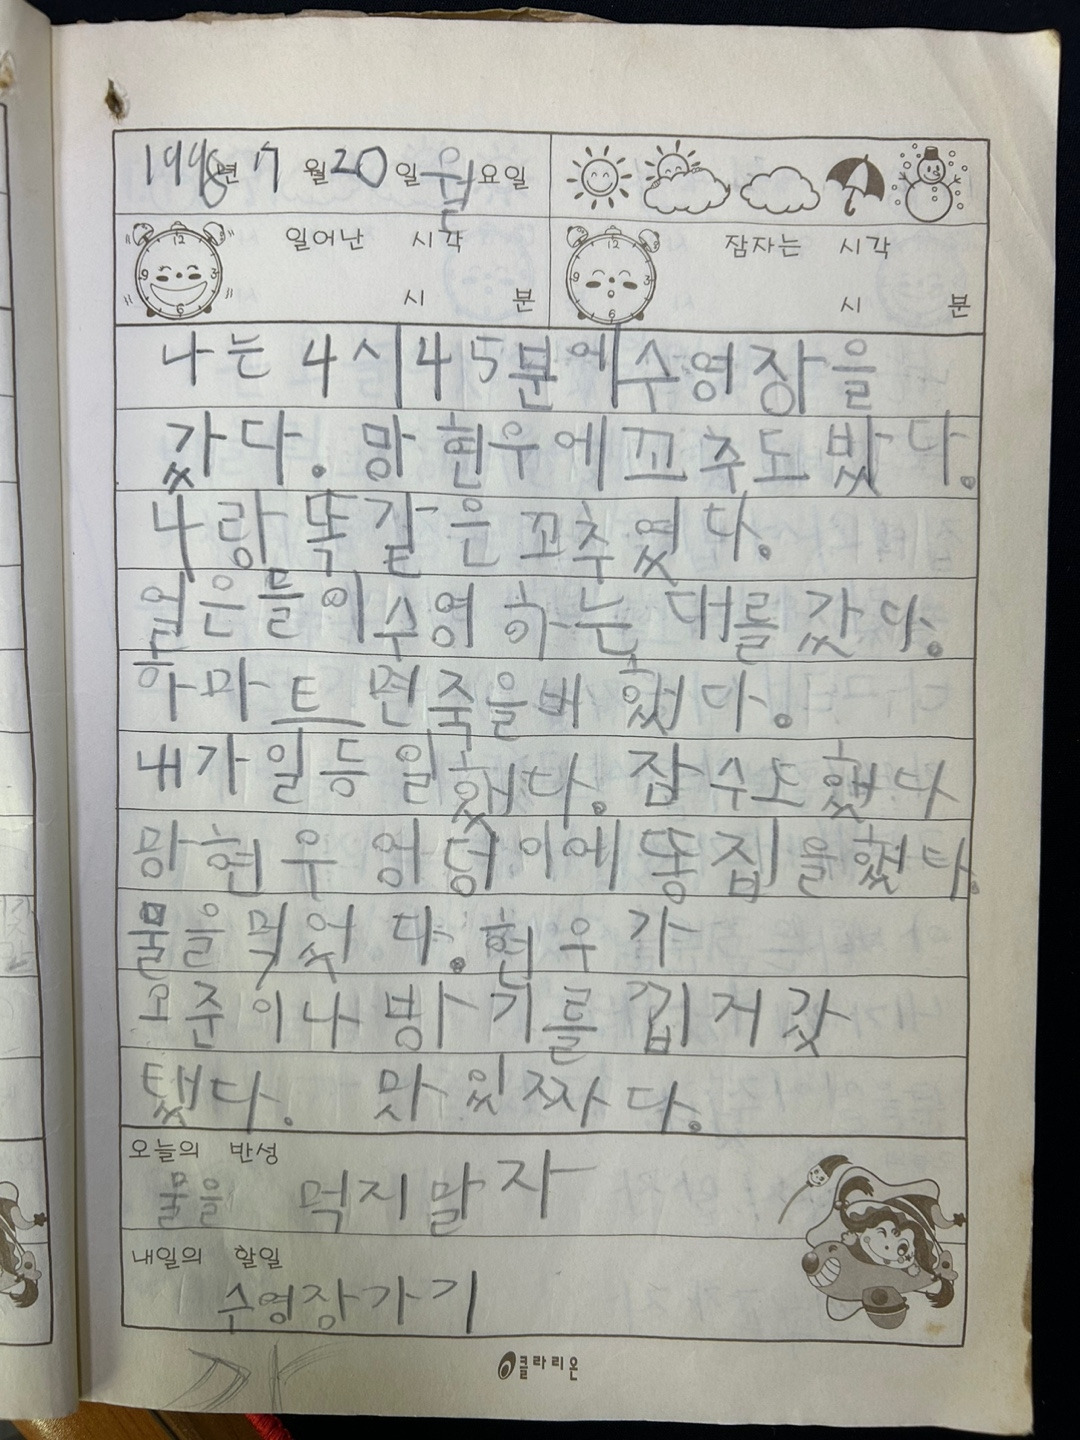 1998년 7월 20일 월요일
일어난 시각
시 분
잠자는 시각
시 분
나는 4시45분에 수영장을
갔다. 망현우에 꼬추도 밨다.
나랑 똑같은 꼬추였다.
얼은들이 수영하는 대를 갔다.
하마트면 죽을버 했다.
내가 일등 일했다. 잠수도 했다
망현우 엉덩이에 똥집을 했다.
물을 먹었다. 현우가
오준이나 방기를 낍거 갔
탰다. 맛있짜다.
오늘의 반성
물을 먹지말자
내일의 할일
수영장가기
클라리온